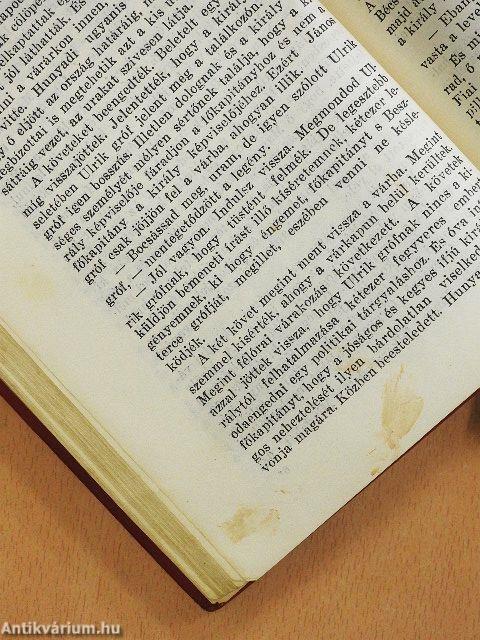 jól láthatták. És
ul a várárkon innen,
jötte. Hunyadi ugyanis
ő előtt az ország határáig, mert
egbízottai is megtehetik azt a kis utat
sátráig vezet, az urakat szívesen látja.
A követeket beengedték. Beletelt egy
míg visszajöttek. Jelentették, hogy a király
seletében Ulrik gróf jelent meg a találkozón.
gróf igen bosszús. Illetlen dolognak és a király
séges személyét mélyen sértőnek találja, hogy a k
rály képviselője fáradjon a főkapitányhoz és nem
főkapitány a király képviselőjéhez. Ezért János
gróf csak jöjjön fel a várba, ahogyan illik.
— Bocsássad meg, uram, de így szólott Ulrik
gróf, — mentegetődzött a legény.
— Jól vagyon. Indulsz vissza. Megmondod Ul-
rik grófnak, hogy tüstént felmék. De legestebb
küldjön bémeneti írást illő kíséretemnek, kétezer le-
gényemnek, ki hogy engemet, főkapitányt s Besz
terce grófját, megillet, eszében venni ne késle-
kedjék.
A két követ megint ment vissza a várba. Megint
szemmel kísérték, ahogy a várkapun belül kerültek
Megint félórai várakozás következett. A követek
azzal jöttek vissza, hogy Ulrik grófnak nincs a ki-
rálytól felhatalmazása kétezer fegyveres ember
odaengedni egy politikai tárgyaláshoz. És óva
főkapitányt, hogy a jóságos és kegyes ifjú kirá
gos neheztelését ilyen bárdolatlan viselked
vonja magára. Közben beesteledett. Hunya
Bécs
a király
— Eban
vasta a leve
rad, ő
Fiai
pil
Antikvárium.hu